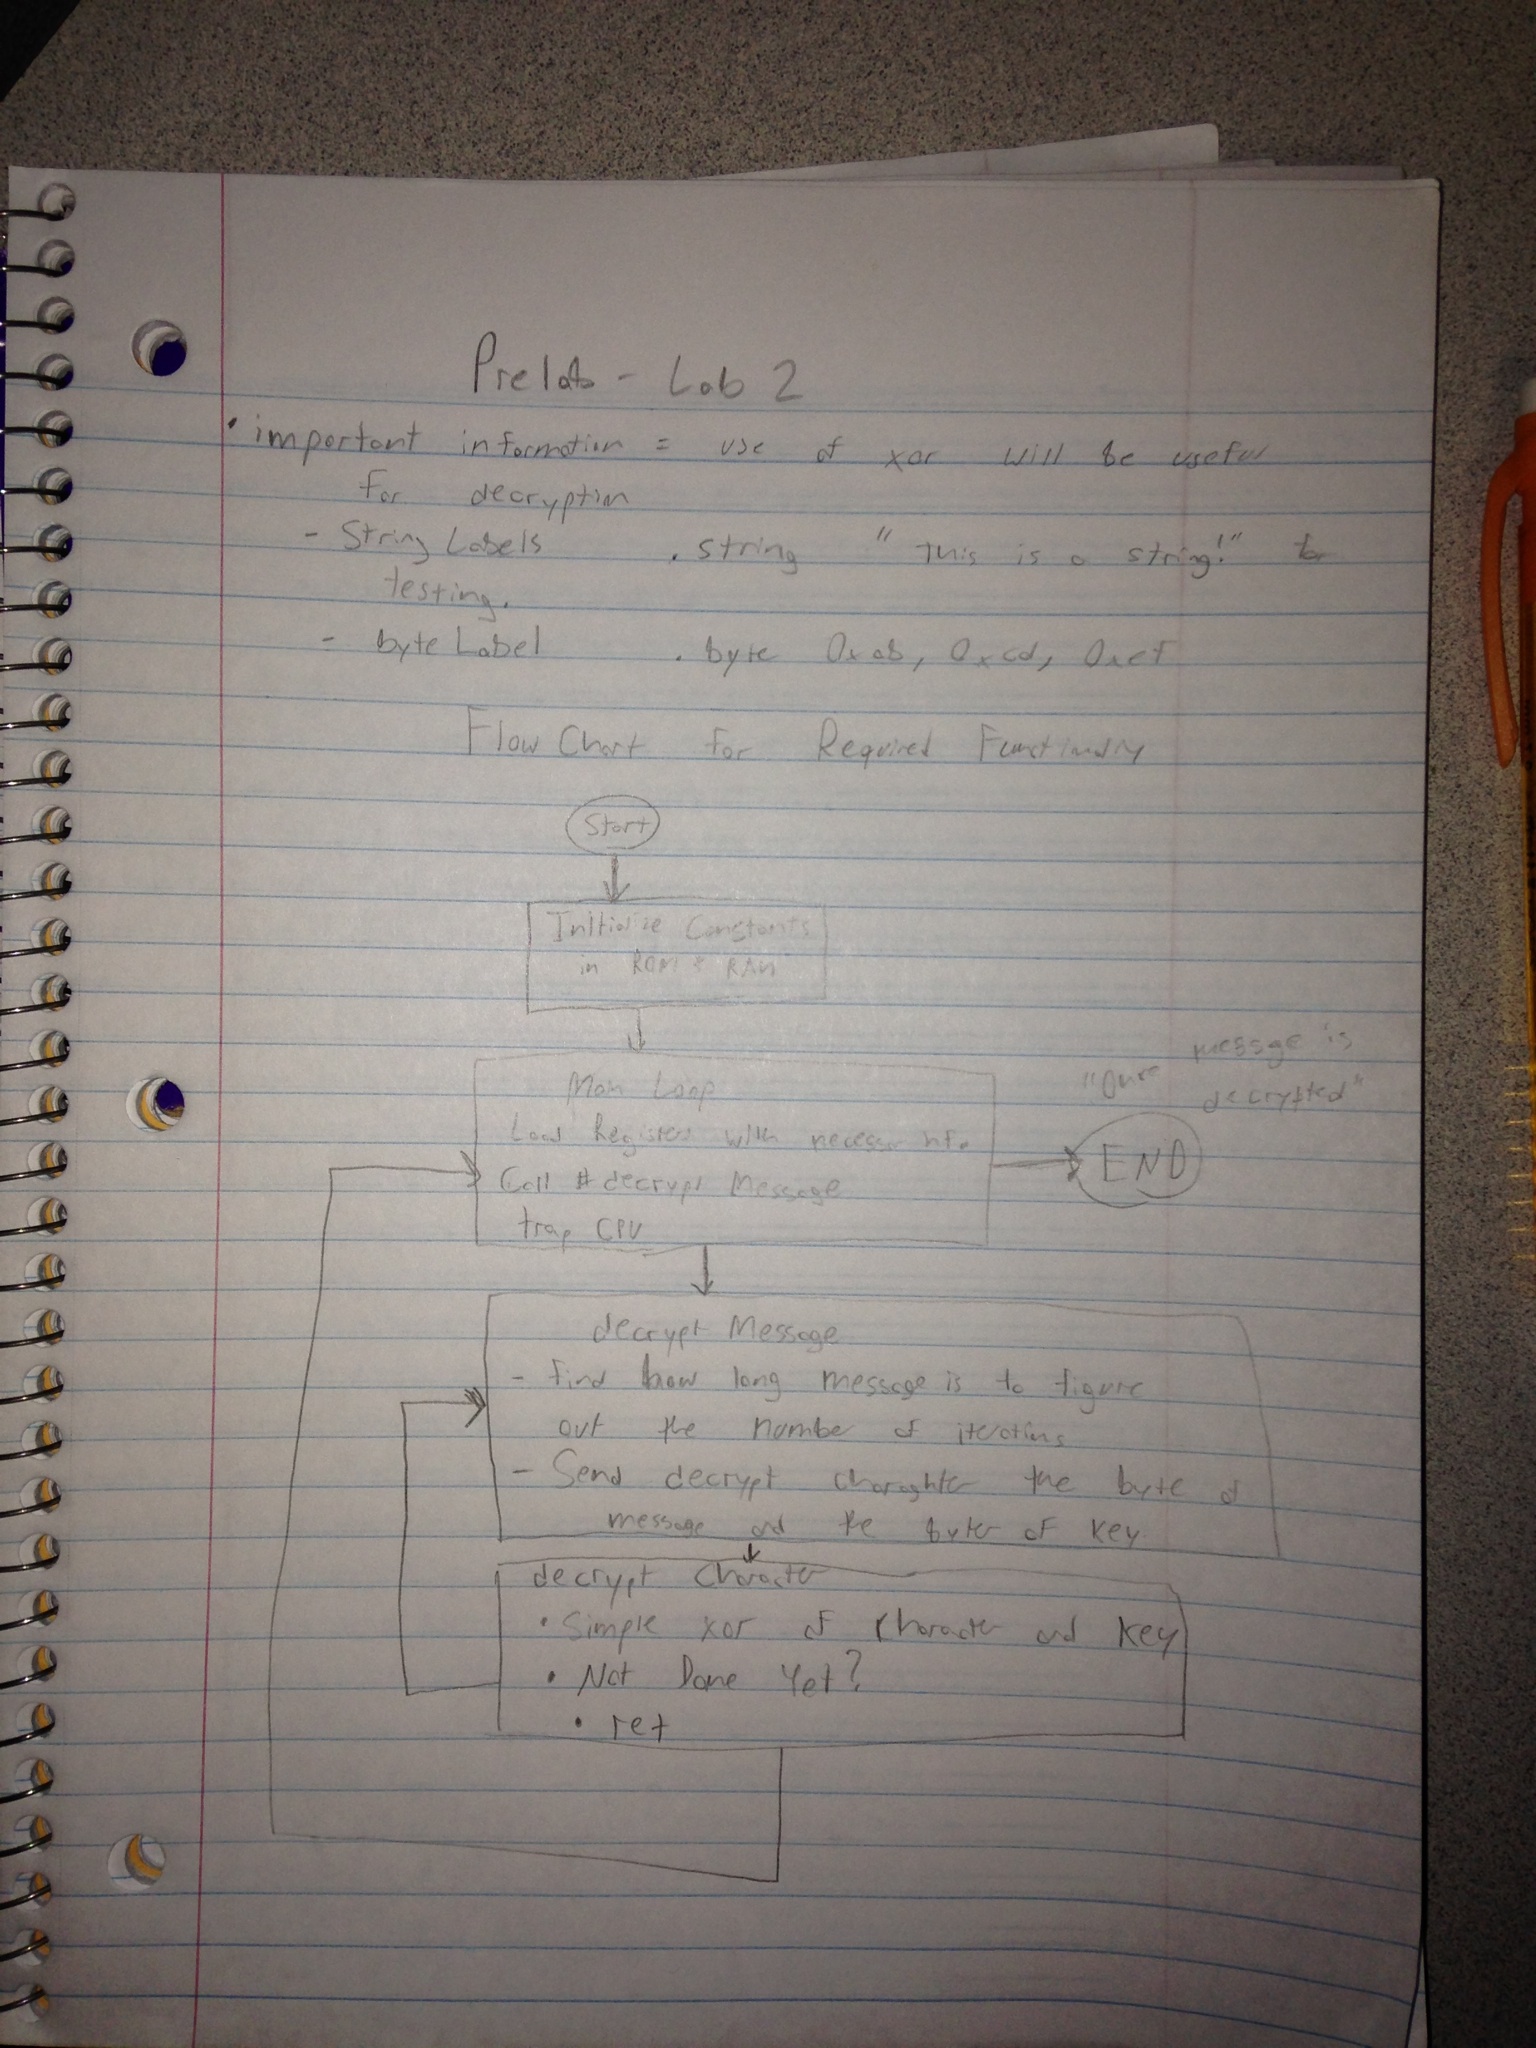 Prelab - Lab 2
• important information = use of xor will be useful
for decryption
- String Labels . string "This is a string!" for
testing.
- byte Label . byte 0xab, 0xcd, 0xef
Flow Chart for Required
Start
Initialize Constants
in ROM & RAM
message is
"Once decrypted"
Main Loop
Load Registers with necessar info
END
Call # decrypt Message
trap CPU
decrypt Message
- Find how long message is to figure
out the number of
- Send decrypt the byte of
message and the byte of key.
decrypt Character
• Simple xor of Character and Key
• Not Done Yet?
• ret